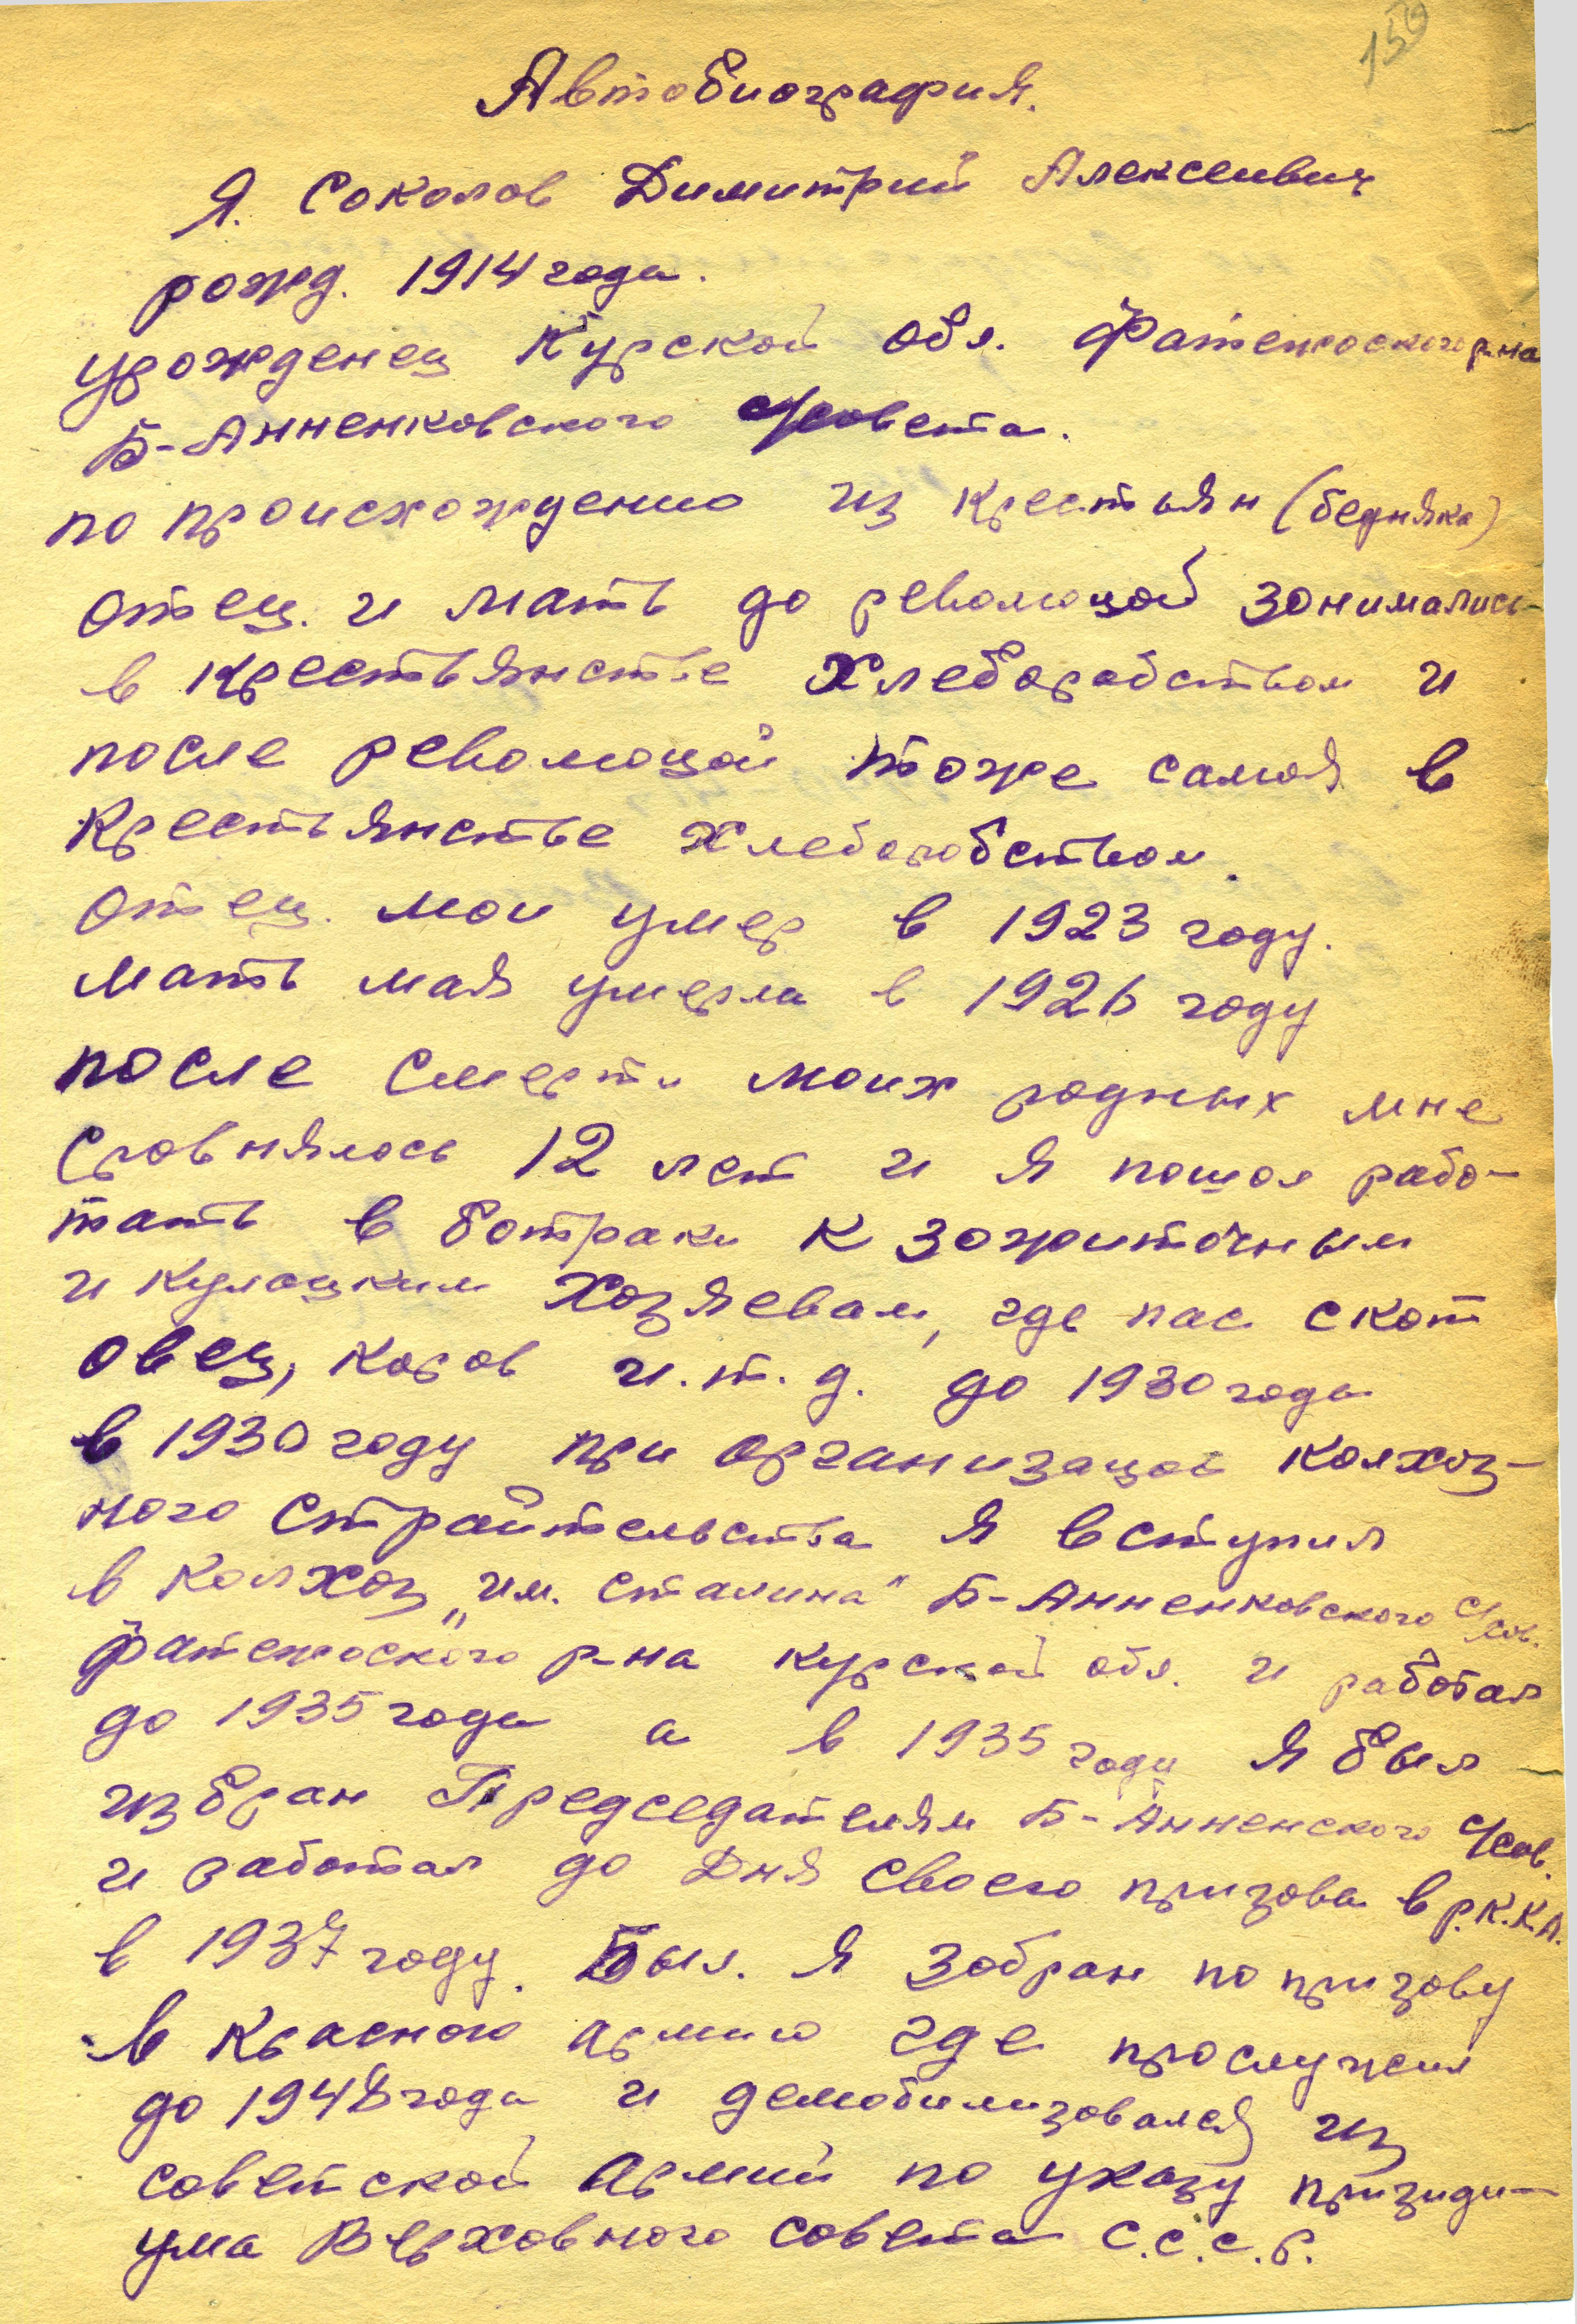 159
Автобиография.
Я. Соколов Димитрий Алексеивич
рожд. 1914 года.
урожденец Курской обл. Фатежского р-на
Б-Анненковского с/совета.
по происхождению из крестьян (бедняка)
отец. и мать до революцой зонимались
в крестьянстве Хлеборобством и
после революцой тоже самоя в
Крестьянстве хлеборобством.
отец. мои умер в 1923 году.
мать мая умерла в 1926 году
после смерти моих родных мне
сровнялось 12 лет и я пошол рабо-
тать в ботраки к зожиточным
и кулацким Хозяевам, где пас скот
овец, коров и.т.д. до 1930 года
в 1930 году при организацои колхоз-
ного страительства я вступил
в Колхоз „им. Сталина" Б-Анненковского с/сов.
фатежского р-на курской обл. и работал
до 1935 года а в 1935 году я был
избран Председателям Б-Анненского с/сов.
и работал до Дня своего призова в Р.К.К.А.
в 1937 году. Был. я зобран по призову
в Красною армию где прослужил
до 1948 года и демобилизовался из
советской Армий по указу призиди-
ума Верховного совета С.С.С.Р.